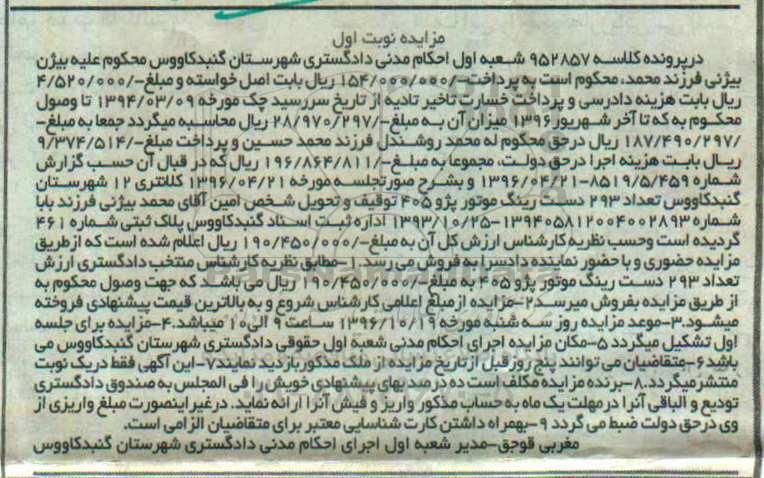 مزایده نوبت اول
در پرونده کلاسه ۹۵۲۸۵۷ شعبه اول احکام مدنی دادگستری شهرستان گنبدکاووس محکوم علیه بیژن
بیژنی فرزند محمد، محکوم است به پرداخت-/۱۵۴/۰۰۰/۰۰۰ ریال بابت اصل خواسته و مبلغ-/۴/۵۲۰/۰۰۰
ریال بابت هزینه دادرسی و پرداخت خسارت تاخیر تادیه از تاریخ سررسید چک مورخه ۱۳۹۴/۰۳/۰۹ تا وصول
محکوم به که تا آخر شهریور ۱۳۹۶ میزان آن به مبلغ-/۲۸/۹۷۰/۲۹۷ ریال محاسبه میگردد جمعا به مبلغ-
/۱۸۷/۴۹۰/۲۹۷ ریال در حق محکوم له محمد روشندل فرزند محمد حسین و پرداخت مبلغ-/۹/۳۷۴/۵۱۴
ریال بابت هزینه اجرا در حق دولت، مجموعا به مبلغ-/۱۹۶/۸۶۴/۸۱۱ ریال که در قبال آن حسب گزارش
شماره ۸۵۱۹/۵/۴۵۹-۱۳۹۶/۰۴/۲۱ و بشرح صورتجلسه مورخه ۱۳۹۶/۰۴/۲۱ کلانتری ۱۲ شهرستان
گنبدکاووس تعداد ۲۹۳ دست رینگ موتور پژو ۴۰۵ توقیف و تحویل شخص امین آقای محمد بیژنی فرزند بابا
شماره ۱۳۹۴۰۵۸۱۲۰۰۴۰۰۲۸۹۳-۱۳۹۳/۱۰/۲۵ اداره ثبت اسناد گنبدکاووس پلاک ثبتی شماره ۴۶۱
گردیده است وحسب نظریه کارشناس ارزش کل آن به مبلغ-/۱۹۰/۴۵۰/۰۰۰ ریال اعلام شده است که ازطریق
مزایده حضوری و با حضور نماینده دادسرا به فروش می رسد.۱-مطابق نظریه کارشناس منتخب دادگستری ارزش
تعداد ۲۹۳ دست رینگ موتور پژو ۴۰۵ به مبلغ-/۱۹۰/۴۵۰/۰۰۰ ریال می باشد که جهت وصول محکوم به
از طریق مزایده بفروش میرسد۲-مزایده از مبلغ اعلامی کارشناس شروع و به بالاترین قیمت پیشنهادی فروخته
میشود.۳-موعد مزایده روز سه شنبه مورخه ۱۳۹۶/۱۰/۱۹ ساعت ۹ الی۱۰ میباشد.۴-مزایده برای جلسه
اول تشکیل میگردد ۵-مکان مزایده اجرای احکام مدنی شعبه اول حقوقی دادگستری شهرستان گنبدکاووس می
باشد۶-متقاضیان می توانند پنج روز قبل از تاریخ مزایده از ملک مذکور بازدید نمایند۷-این آگهی فقط در یک نوبت
منتشر میگردد.۸-برنده مزایده مکلف است ده درصد بهای پیشنهادی خویش را فی المجلس به صندوق دادگستری
تودیع و الباقی آنرا در مهلت یک ماه به حساب مذکور واریز و فیش آنرا ارائه نماید. در غیر اینصورت مبلغ واریزی از
وی در حق دولت ضبط می گردد ۹-بهمراه داشتن کارت شناسایی معتبر برای متقاضیان الزامی است.
مغربی قوجق-مدیر شعبه اول اجرای احکام مدنی دادگستری شهرستان گنبدکاووس